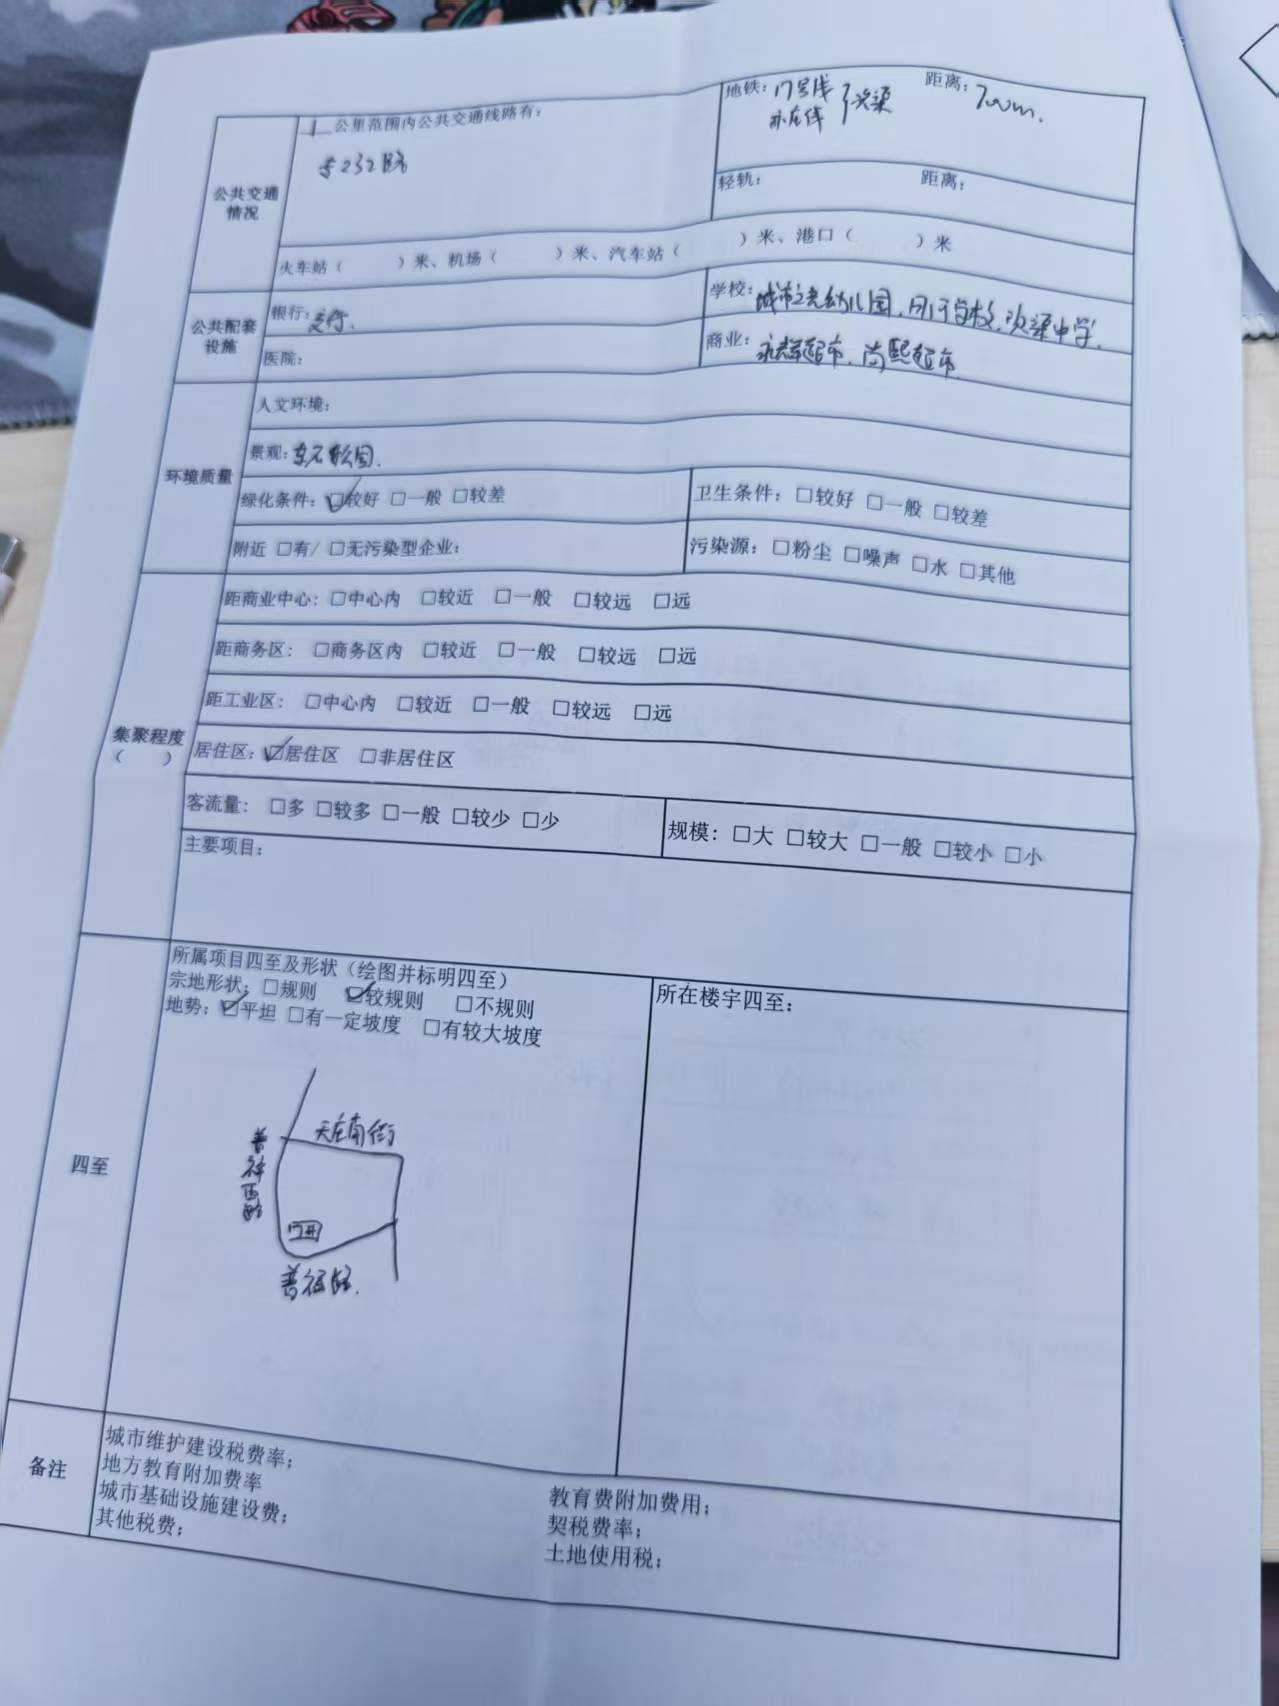 公共交通
情况
1 公里范围内公共交通线路有：
专232路
地铁：17号线
亦庄线
次渠
距离：700m.
轻轨： 距离：
火车站（ ）米、机场（ ）米、汽车站（ ）米、港口（ ）米
公共配套
设施
银行：交行.
学校：城市之光幼儿园、学校、次渠中学.
医院：
商业：永辉超市、尚熙超市.
环境质量
人文环境：
景观：公园.
绿化条件：☑较好 □一般 □较差
卫生条件：□较好 □一般 □较差
附近 □有/ □无污染型企业：
污染源：□粉尘 □噪声 □水 □其他
集聚程度
（ ）
距商业中心：□中心内 □较近 □一般 □较远 □远
距商务区：□商务区内 □较近 □一般 □较远 □远
距工业区：□中心内 □较近 □一般 □较远 □远
居住区：☑居住区 □非居住区
客流量：□多 □较多 □一般 □较少 □少
规模：□大 □较大 □一般 □较小 □小
主要项目：
四至
所属项目四至及形状（绘图并标明四至）
宗地形状：□规则 ☑较规则 □不规则
地势：☑平坦 □有一定坡度 □有较大坡度
所在楼宇四至：
天庄南街
普祥西路
普祥路.
备注
城市维护建设税费率；
地方教育附加费率
城市基础设施建设费；
其他税费；
教育费附加费用；
契税费率；
土地使用税；